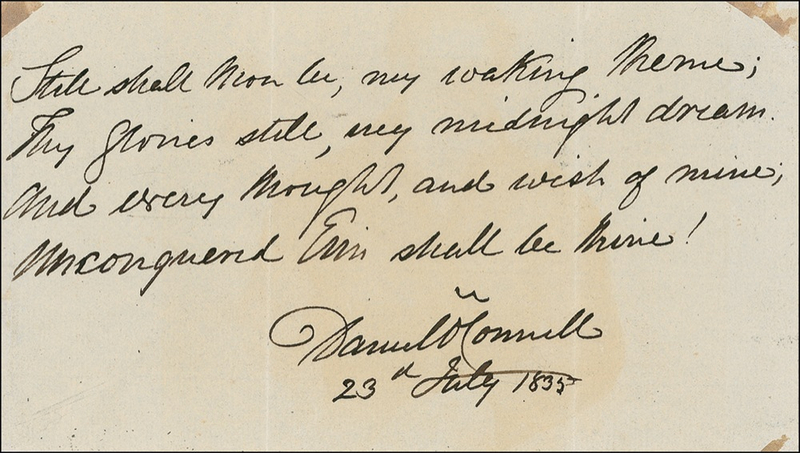 Still shall thou be, my waking theme;
Thy glories still, my midnight dream.
And every thought, and wish of mine;
Unconquered Erin shall be thine!
Daniel O'Connell
23d July 1835